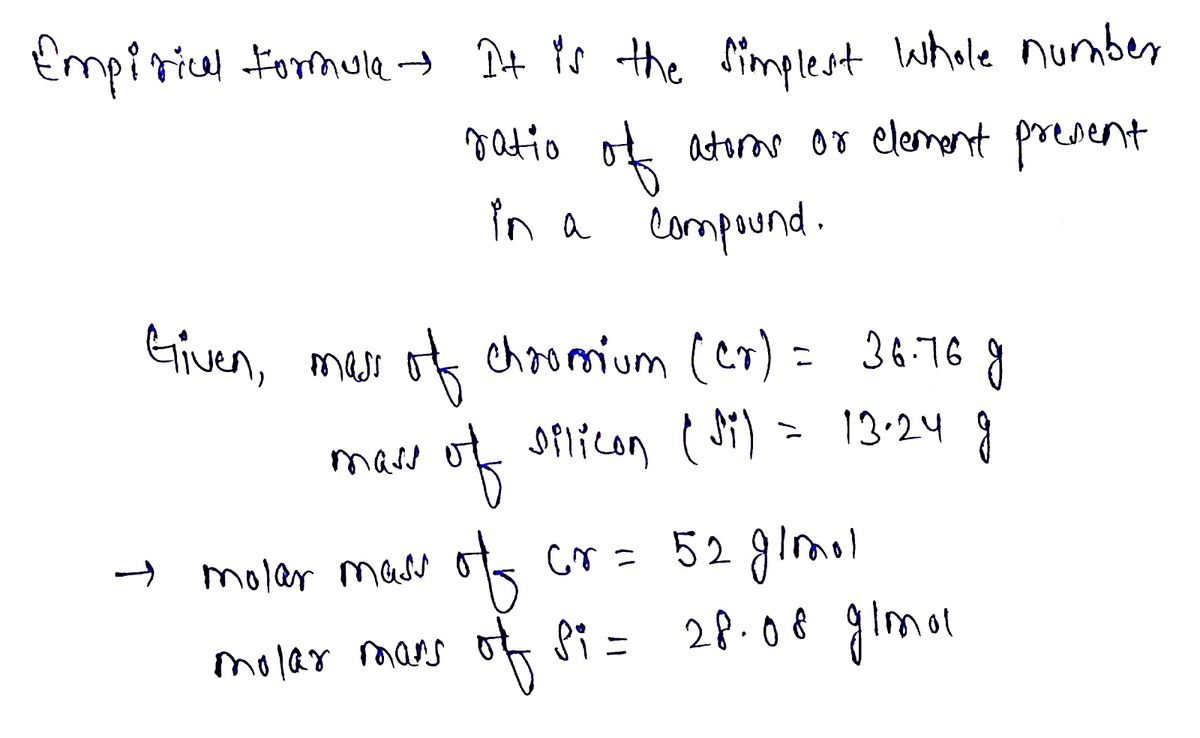 Empirical Formula → It is the simplest whole number
ratio of atoms or element present
in a compound.
Given, mass of chromium (Cr) = 36.76 g
mass of silicon (Si) = 13.24 g
→ molar mass of Cr = 52 g/mol
molar mass of Si = 28.08 g/mol